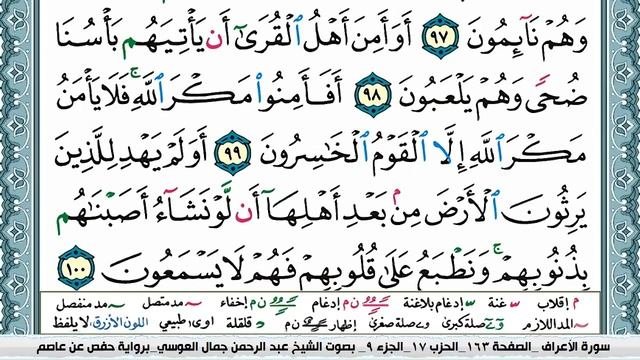 وَهُمْ نَآئِمُونَ ٩٧ أَوَأَمِنَ أَهْلُ ٱلْقُرَىٰٓ أَن يَأْتِيَهُم بَأْسُنَا
ضُحًى وَهُمْ يَلْعَبُونَ ٩٨ أَفَأَمِنُوا۟ مَكْرَ ٱللَّهِ ۚ فَلَا يَأْمَنُ
مَكْرَ ٱللَّهِ إِلَّا ٱلْقَوْمُ ٱلْخَٰسِرُونَ ٩٩ أَوَلَمْ يَهْدِ لِلَّذِينَ
يَرِثُونَ ٱلْأَرْضَ مِنۢ بَعْدِ أَهْلِهَآ أَن لَّوْ نَشَآءُ أَصَبْنَٰهُم
بِذُنُوبِهِمْ ۚ وَنَطْبَعُ عَلَىٰ قُلُوبِهِمْ فَهُمْ لَا يَسْمَعُونَ ١٠٠
م إقلاب غنة إدغام بلاغنة ن م إدغام ن م إخفاء مد متصل مد منفصل
المد اللازم صلة كبرى صلة صغرى إظهار ن م قلقلة اوى طبيعي اللون الأزرق لا يلفظ
سورة الأعراف_الصفحة ١٦٣_الحزب ١٧_الجزء ٩_ بصوت الشيخ عبد الرحمن جمال العوسي_برواية حفص عن عاصم